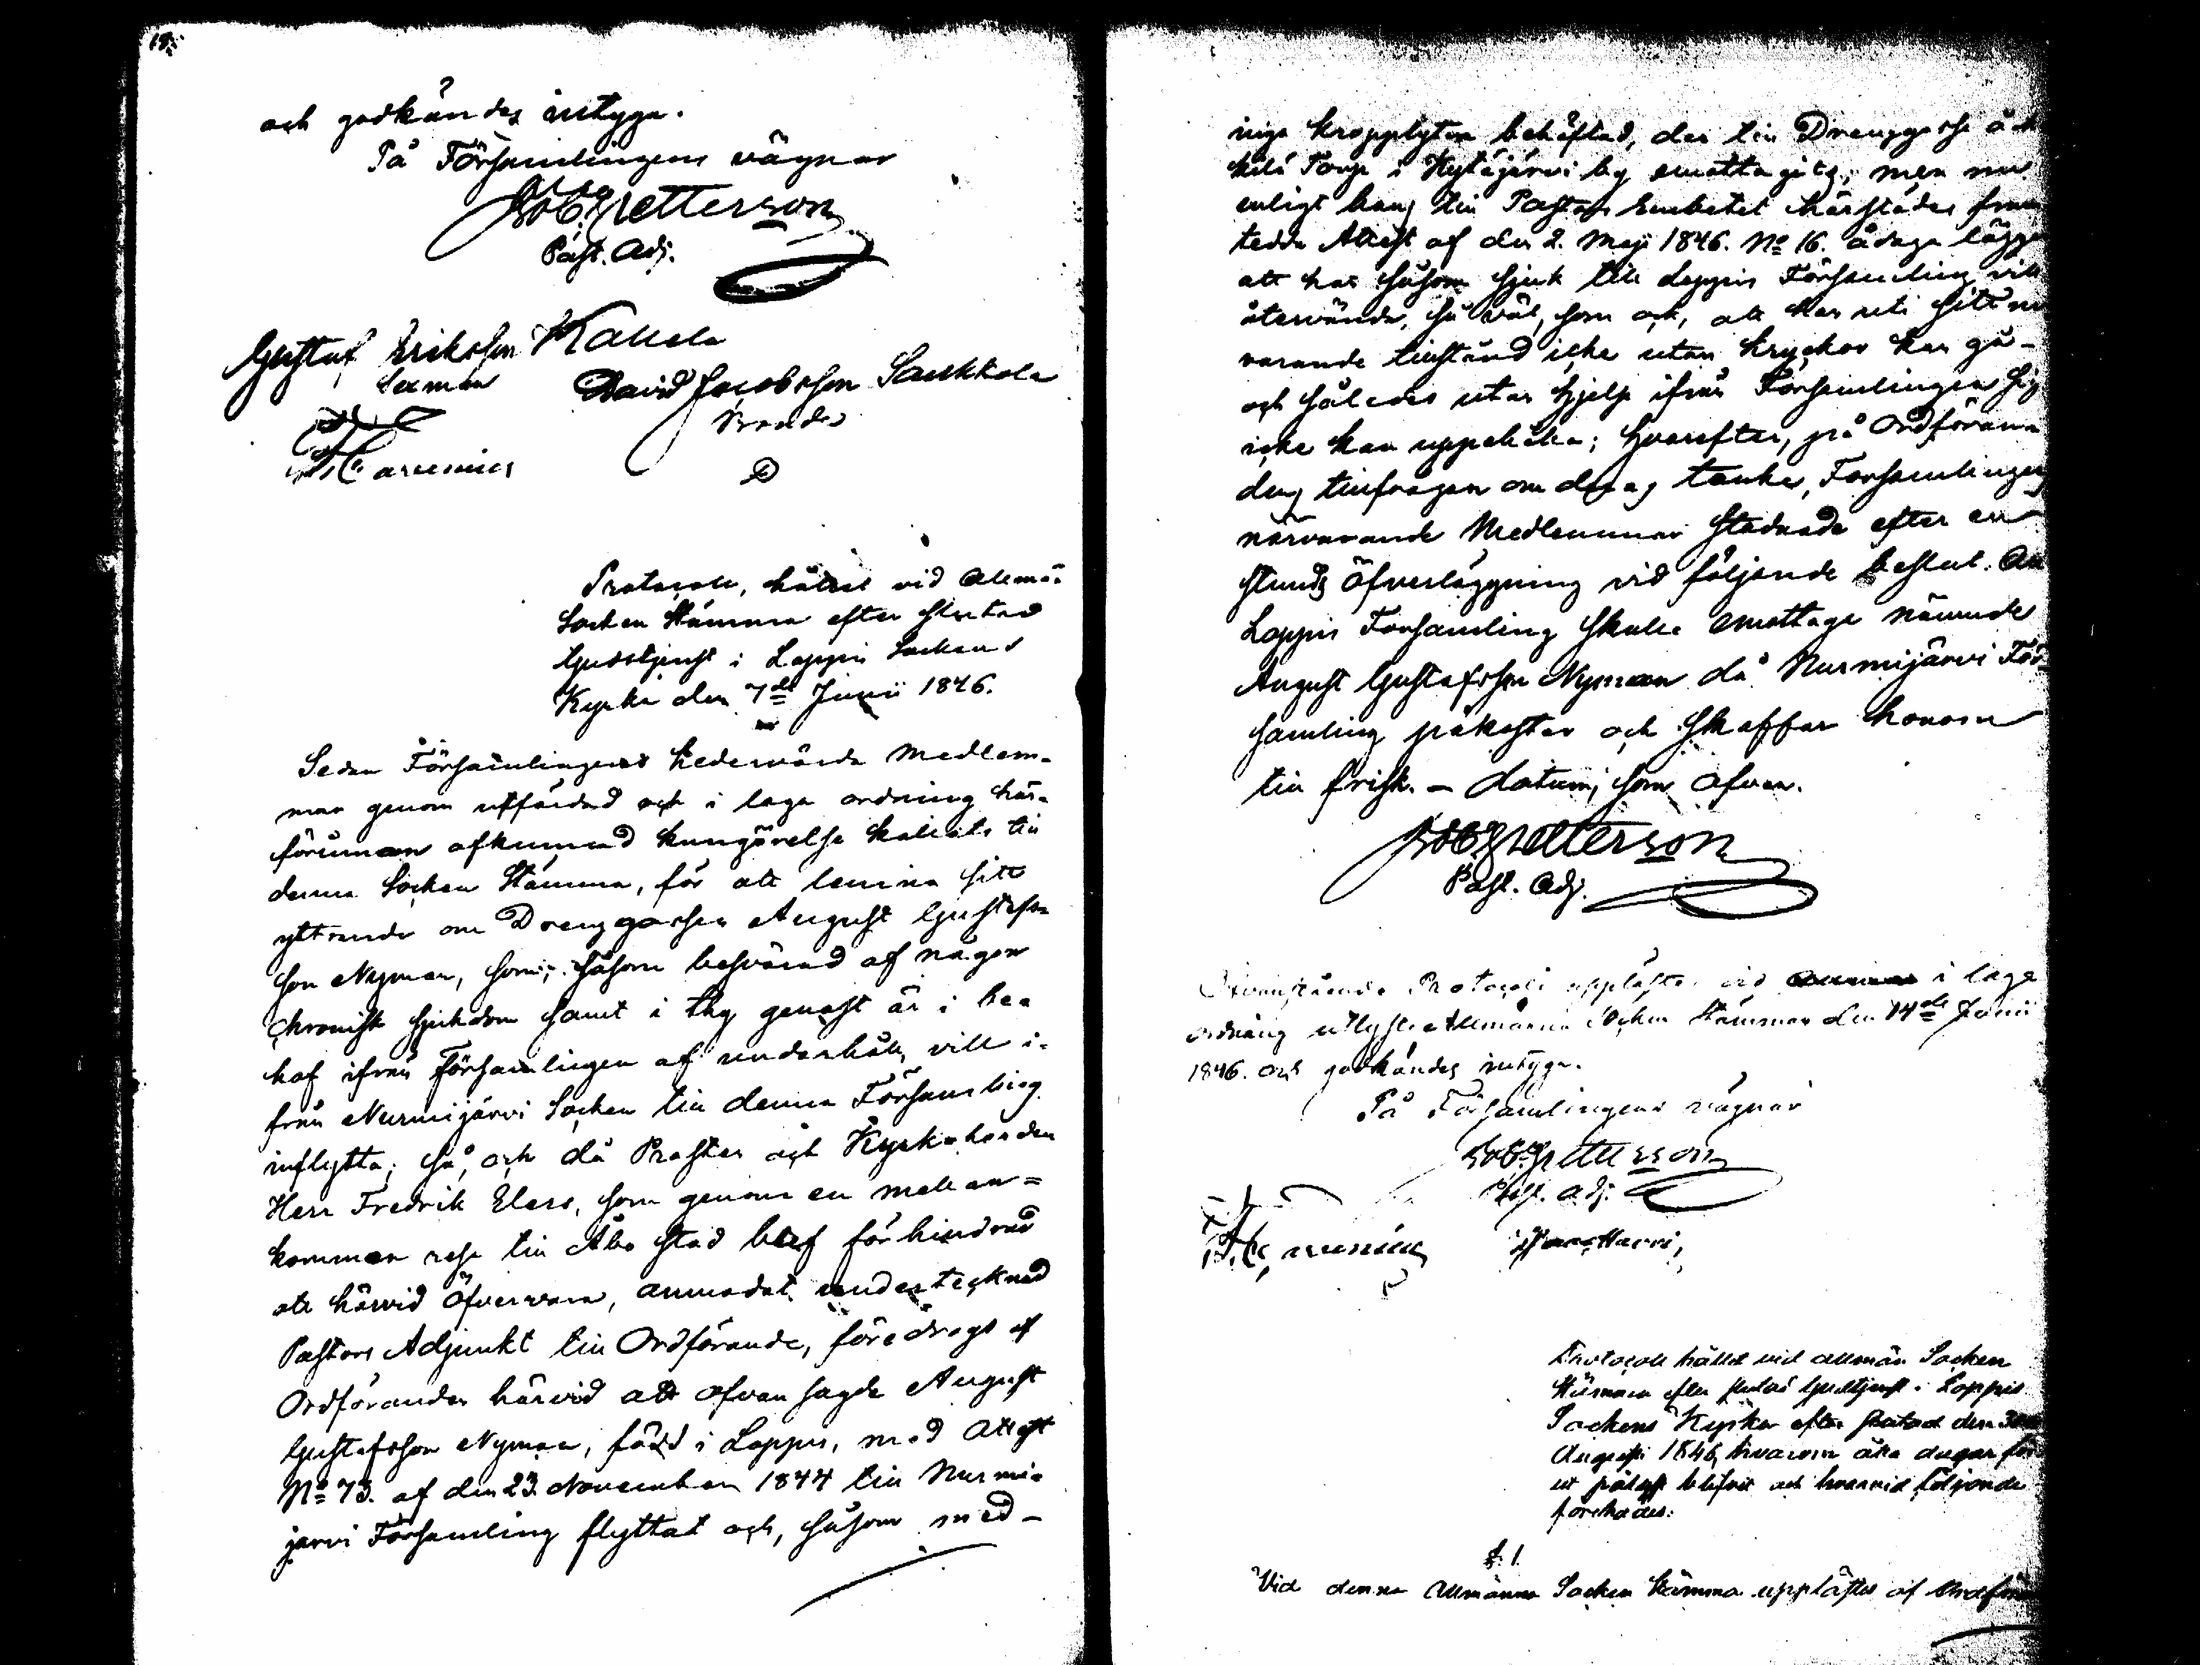 19.
och godkändes intyga.
På Församlingens vägnar
Rob. Petterson
Past. Adj.
Gustaf Eriksson Kallela
Sexman
David Jacobsson Saukkola
Bonde
Protocoll, hållet vid Allmän
Socken Stämma efter slutad
Gudstjenst i Loppis Sockens
Kyrka den 7de Junii 1846.
Sedan Församlingens hedervärda Medlem-
mar genom utfärdad och i laga ordning här-
förinnan afkunnad kungörelse kallats till
denna Socken Stämma, för att lemna sitt
yttrande om Drenggossen August Gustafs-
son Nyman, som, såsom besvärad af någon
chronisk sjukdom samt i thy genast är i be-
hof ifrån Församlingen af underhåll, vill i-
från Nurmijärvi Socken till denna Församling
inflytta; så, och då Prosten och Kyrkoherden
Herr Fredrik Elers, som genom en mellan-
kommen resa till Åbo Stad blef förhindrad
att härvid öfvervara, anmodat undertecknad
Pastors Adjunkt till Ordförande, föredrogs af
Ordföranden härvid att ofvansagde August
Gustafsson Nyman, född i Loppis, med Attest
No 73. af den 23. November 1844 till Nurmi-
järvi Församling flyttat och, såsom med-
inga kropplyten behäftad, der till Drenggosse å
kilä Torp i Hytäjärvi by emottagits, men nu
enligt hans till Pastors Embetet härstädes fram
tedda Attest af den 2. Maji 1846. No 16. ådaga lägger
att han såsom sjuk till Loppis Församling vill
återvända, så väl, som ock, att han uti sitt nu
varande tillstånd icke utan kryckor kan gå -
och således utan hjelp ifrån Församlingen sig
icke kan uppehålla; hvarefter, på Ordföran
dens tillfrågan om deras tanke, Församlingens
närvarande Medlemmar stadnade efter en
stunds öfverläggning vid följande beslut. Att
Loppis Församling skulle emottaga nämnde
August Gustafsson Nyman då Nurmijärvi För-
samling påkostar och skaffar honom
till frisk. - Datum, som ofvan.
Rob. Petterson
Past. Adj.
Ofvanstående Protocoll upplästes vid i laga
ordning utlyste Allmänna Socken Stämman den 14de Junii
1846. och godkändes intyga.
På Församlingens vägnar
Rob. Petterson
Past. Adj.
Protocoll hållet vid allmän Socken
Stämma efter slutad Gudstjenst i Loppis
Sockens Kyrka efter slutad den
Augusti 1846, hvarom åtta dagar för
ut pålyst blifvit och hvarvid följande
förehades:
§. 1.
Vid denna Allmänna Socken Stämma upplästes af Ordföran